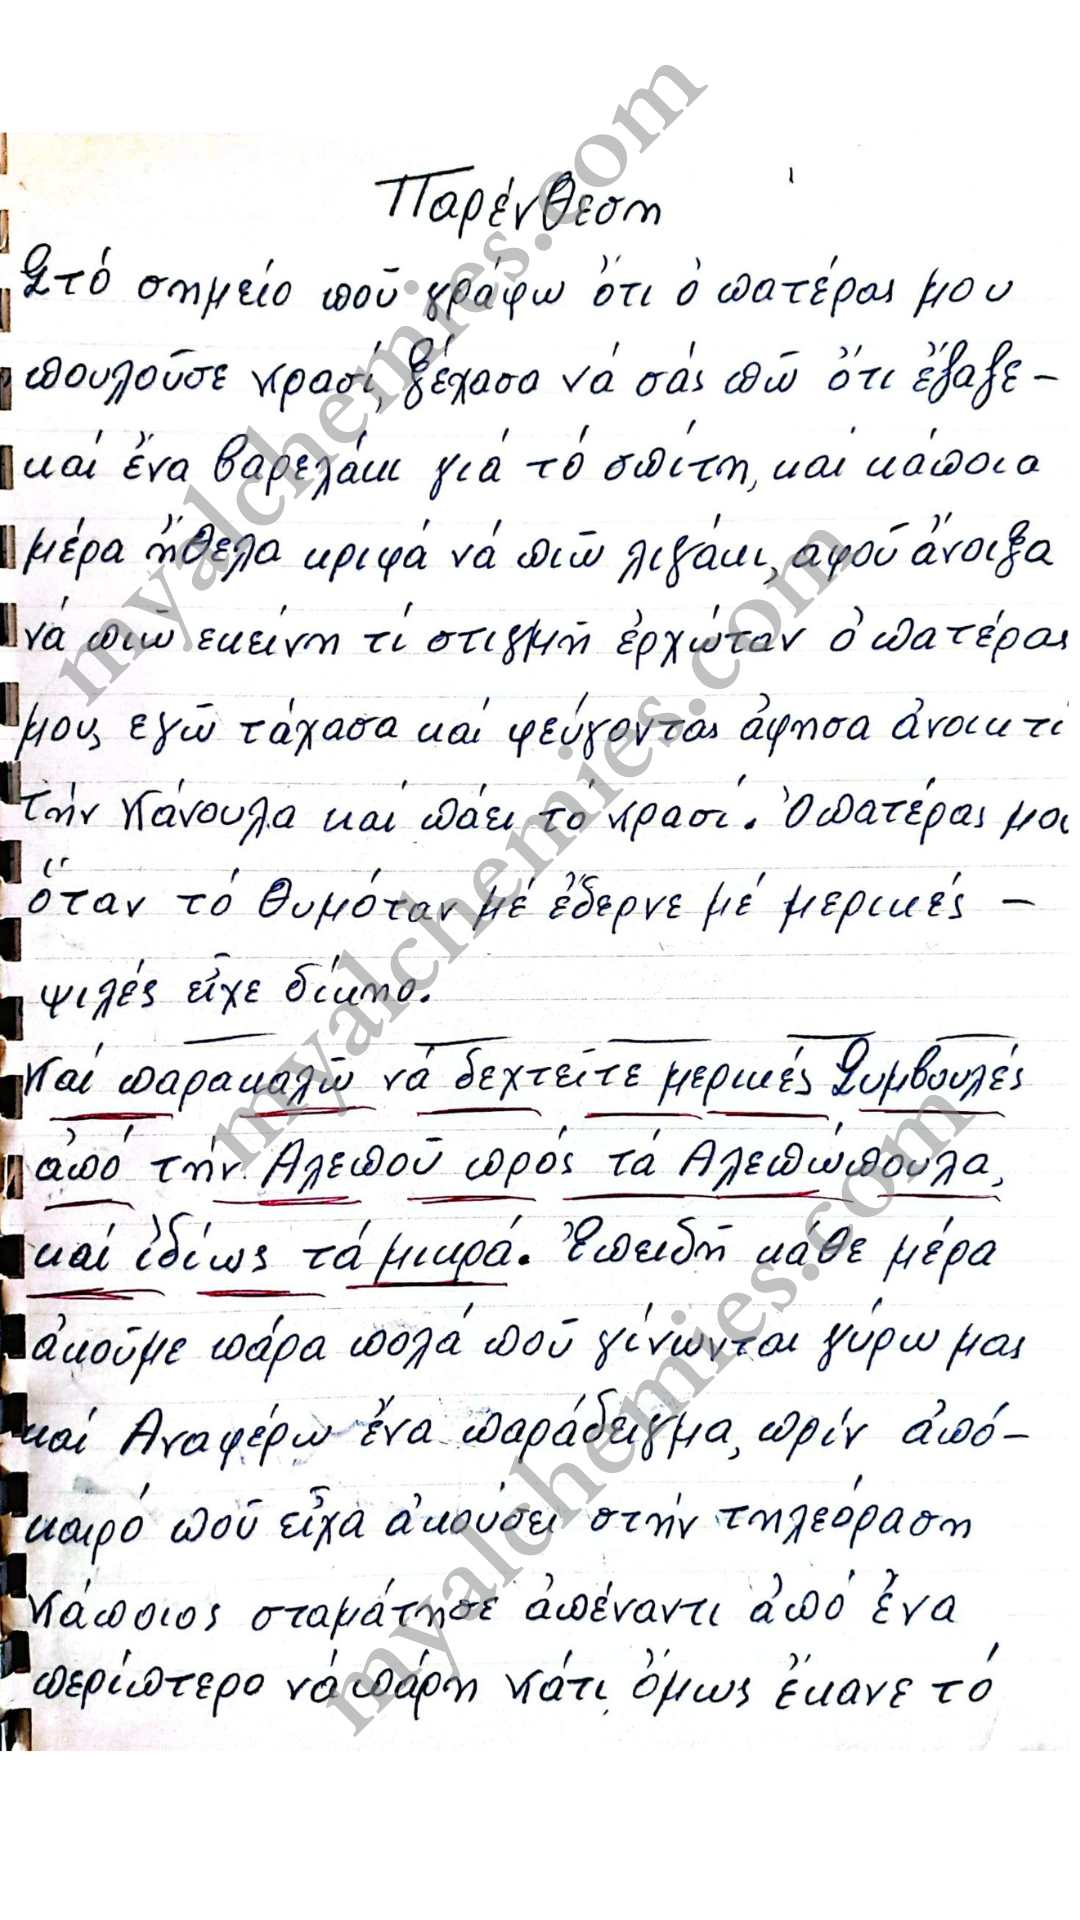 Παρένθεση
Στό σημείο ποῦ γράφω ὅτι ὁ πατέρας μου
πουλοῦσε κρασί, ξέχασα νά σάς πῶ ὅτι ἔβαζε -
καί ἕνα βαρελάκι γιά τό σπίτη, καί κάποια
μέρα ἤθελα κριφά νά πιῶ λιγάκι, αφοῦ ἄνοιξα
νά πιῶ εκείνη τί στιγμῆ ἐρχώταν ὁ πατέρας
μους εγῶ τάχασα καί φεύγοντας ἀφησα ἀνοικτί
τήν κάνουλα καί πάει τό κρασί. Ὁ πατέρας μου
ὅταν τό θυμόταν μέ ἔδερνε μέ μερικές -
ψιλές εἶχε δίκηο.
Καί παρακαλῶ νά δεχτεῖτε μερικές Συμβουλές
ἀπό τήν Αλεποῦ πρός τά Αλεπώπουλα,
καί ἰδίως τά μικρά. Ἐπειδῆ κάθε μέρα
ἀκοῦμε πάρα πολά ποῦ γίνωνται γύρω μας
καί Αναφέρω ἕνα παράδειγμα, πρίν ἀπό-
καιρό ποῦ εἶχα ἀκούσει στήν τηλεόραση
Κάποιος σταμάτησε ἀπέναντι ἀπό ἕνα
περίπτερο νά πάρη κάτι, ὅμως ἔκανε τό
myalchemies.com
myalchemies.com
myalchemies.com